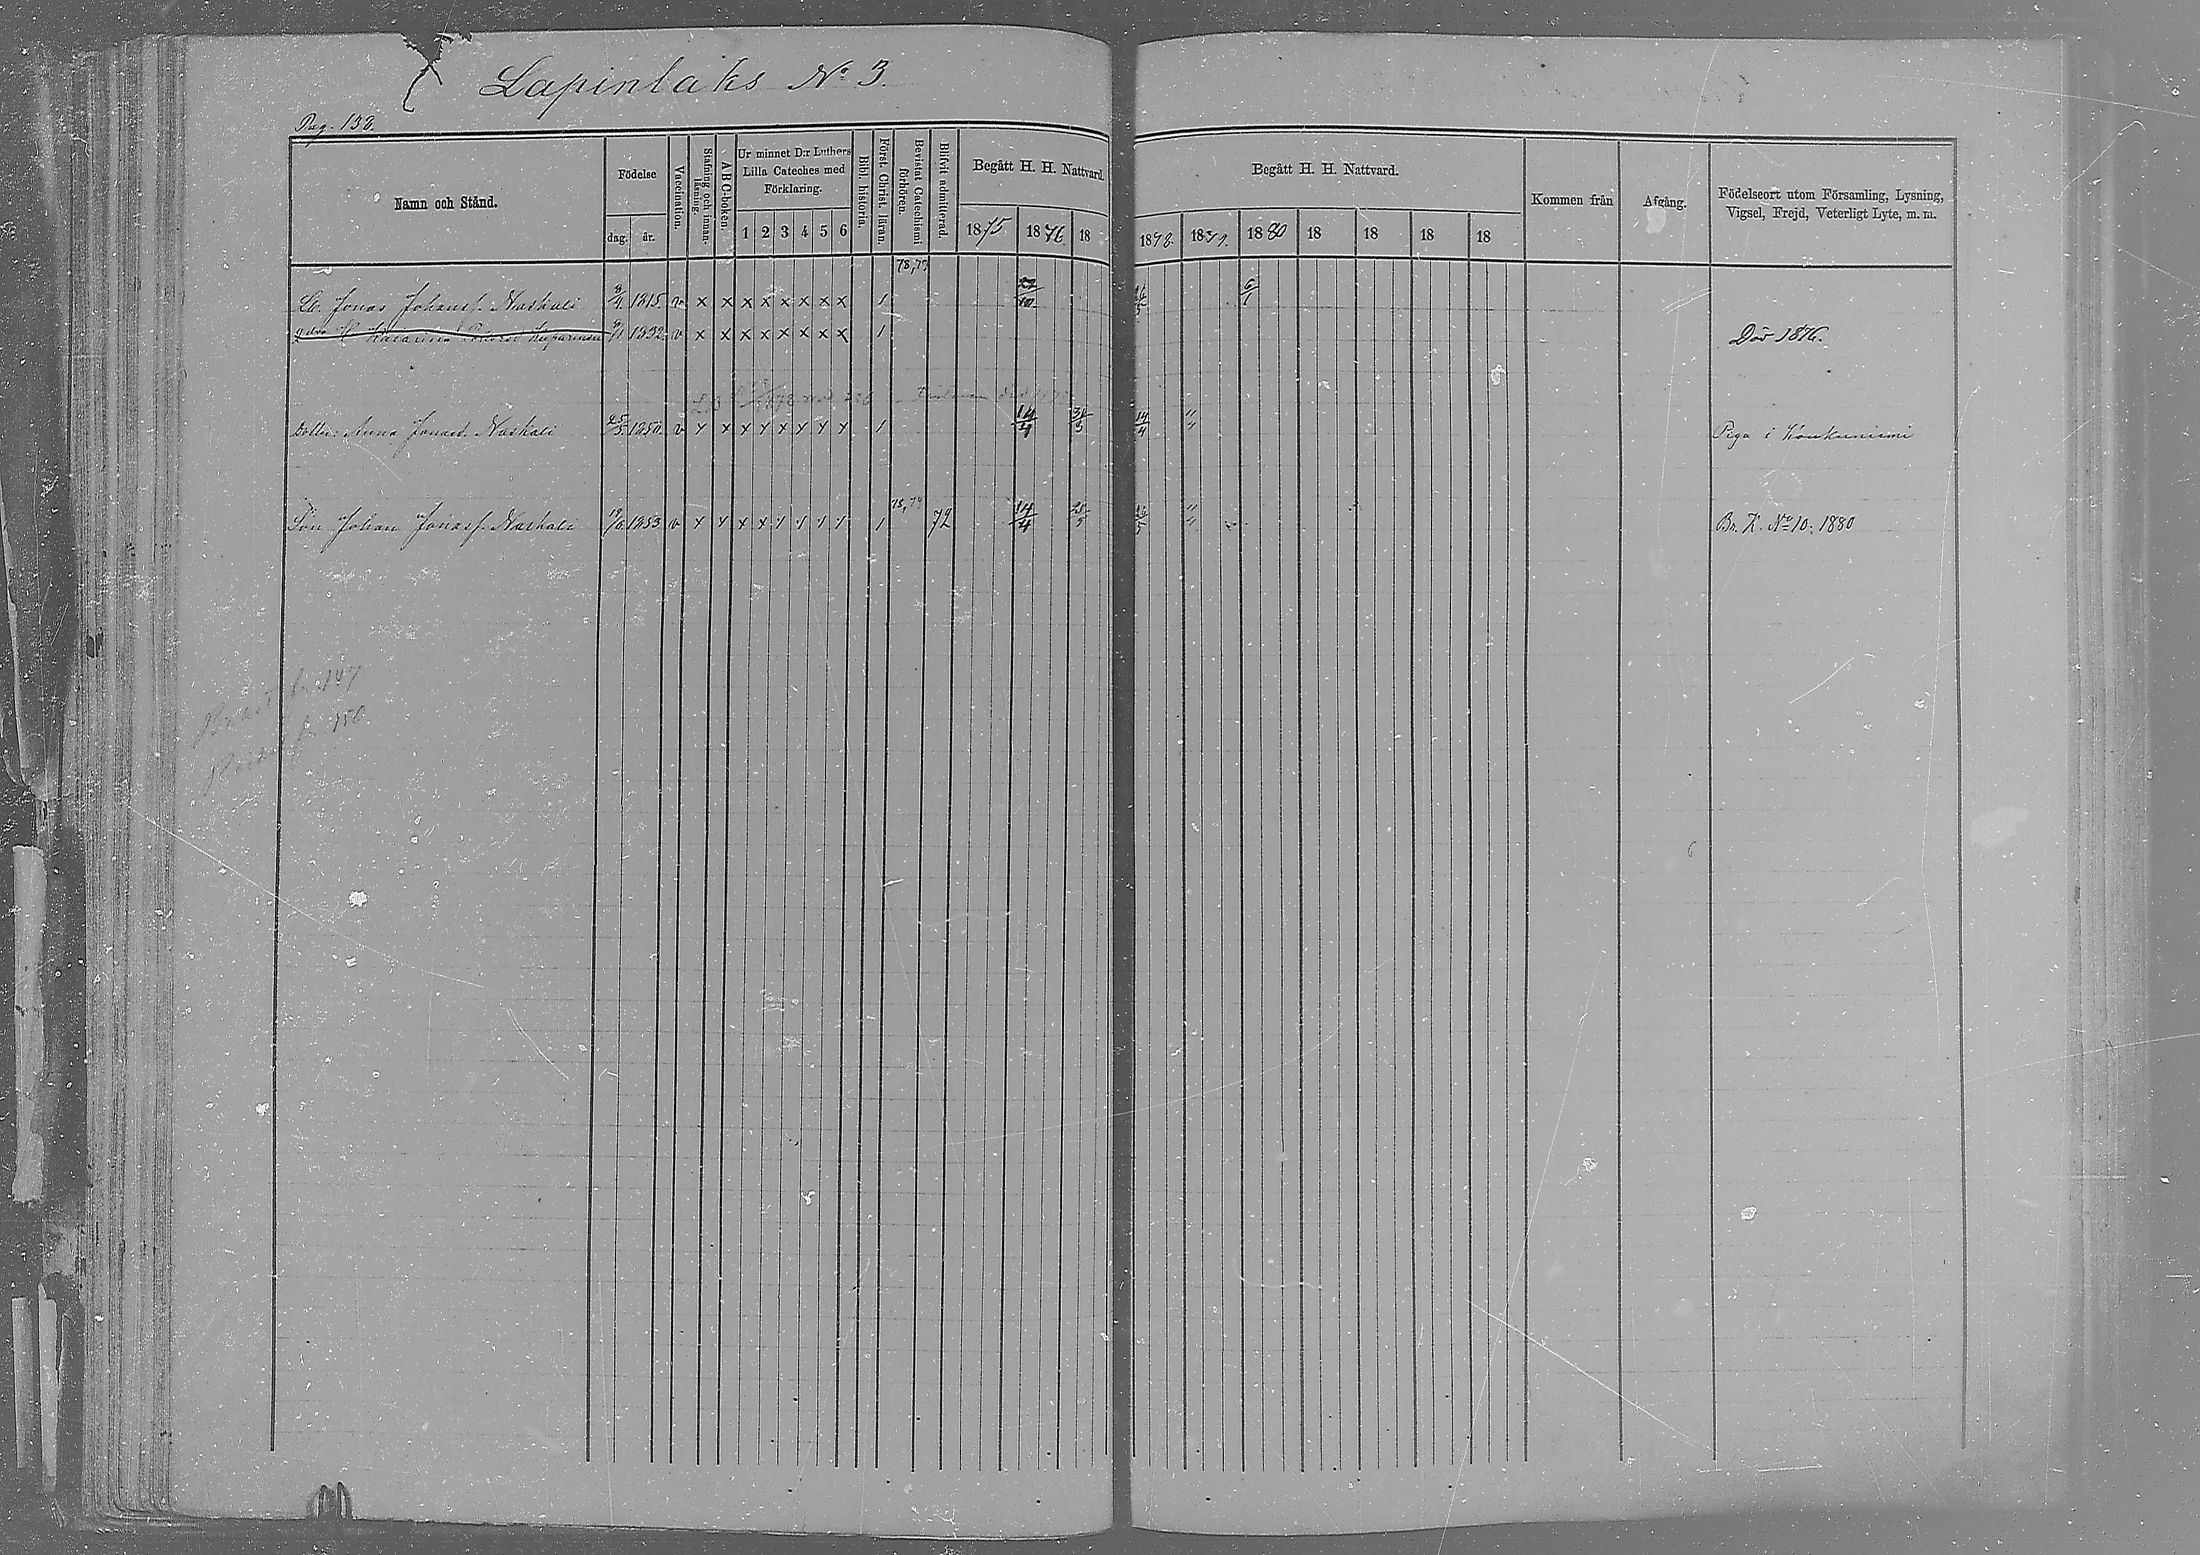 Lapinlaks No 3.
Pag. 132.
Namn och Stånd.
Födelse
dag. år.
Vaccination.
Stafning och innanläsning.
ABC-boken.
Ur minnet D:r Luthers Lilla Cateches med Förklaring.
1 2 3 4 5 6
Bibl. historia.
Först. Christ. läran.
Bevistat Catechismi förhören.
Blifvit admitterad.
Begått H. H. Nattvard.
1875 1876 18
Begått H. H. Nattvard.
1878. 1879. 1880 18 18 18 18
Kommen från
Afgång.
Födelseort utom Församling, Lysning, Vigsel, Frejd, Veterligt Lyte, m. m.
78, 79
Jonas Johansf. Naskali 1815 v x x x x x x x x 1 6/1
1832 v x x x x x x x x 1 Död 1876.
Dotter Anna Jonasd. Naskali 1850 v x x x x x x x x 1 14/4 " Piga i Koukuniemi
78, 79
Son Johan Jonasf. Naskali 1853 v x x x x x x x x 1 72 14/4 " Br. K. No 10. 1880